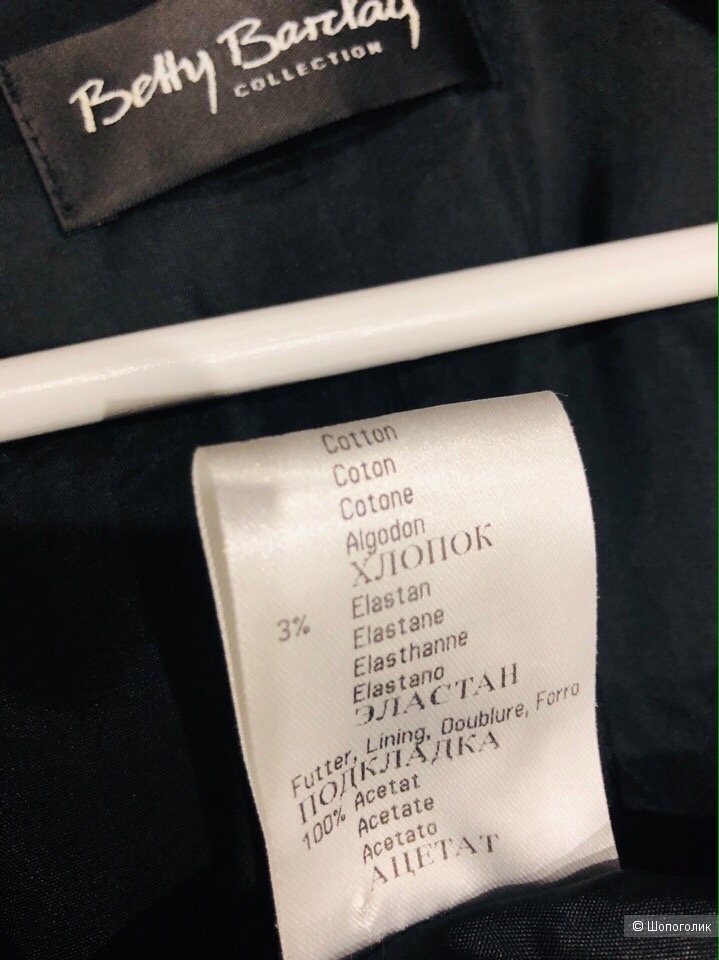 Betty Barclay
COLLECTION
Cotton
Coton
Cotone
Algodon
ХЛОПОК
3% Elastan
Elastane
Elasthanne
Elastano
ЭЛАСТАН
Futter, Lining, Doublure, Forro
ПОДКЛАДКА
100% Acetat
Acetate
Acetato
АЦЕТАТ
© Шопоголик